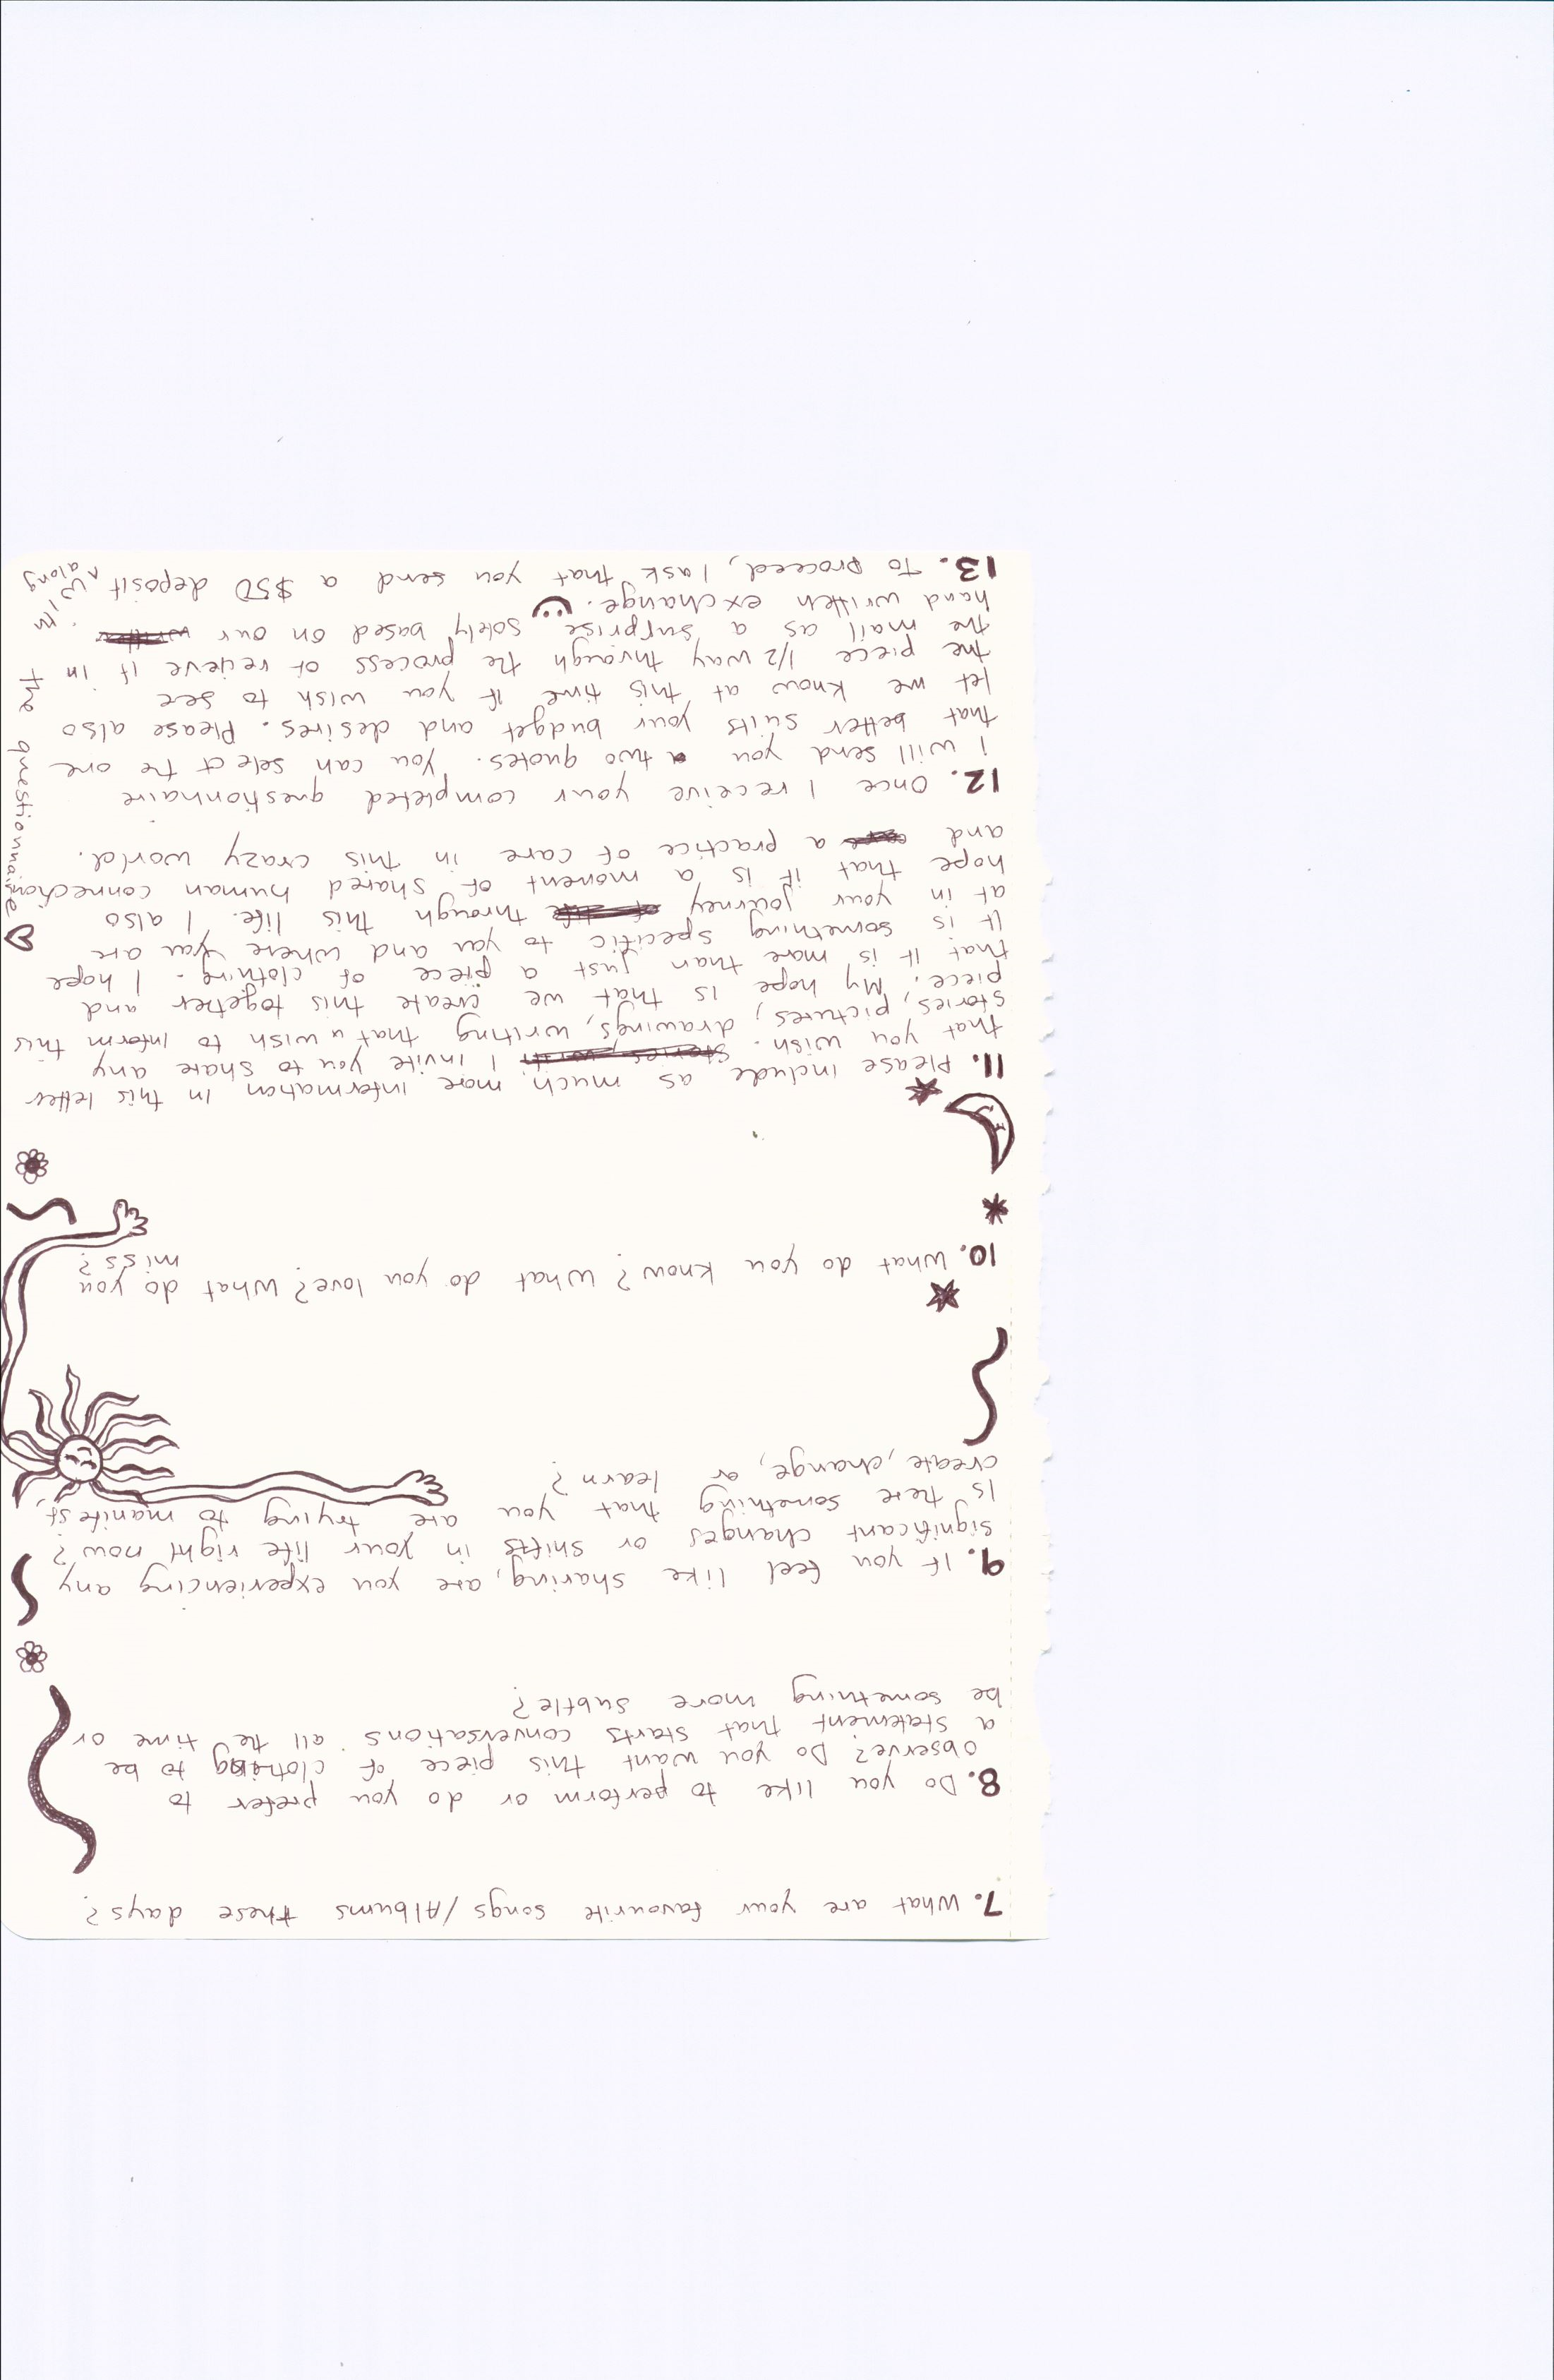 7. What are your favourite songs/Albums these days?
8. Do you like to perform or do you prefer to
observe? Do you want this piece of clothing to be
a statement that starts conversations all the time or
be something more subtle?
9. If you feel like sharing, are you experiencing any
significant changes or shifts in your life right now?
Is there something that you are trying to manifest,
create, change, or learn?
10. What do you know? What do you love? What do you
miss?
11. Please include as much more information in this letter
that you wish. I invite you to share any
stories, pictures, drawings, writing that u wish to inform this
piece. My hope is that we create this together and
that it is more than just a piece of clothing. I hope
It is something specific to you and where you are
at in your journey through this life. I also
hope that it is a moment of shared human connection
and a practice of care in this crazy world.
12. Once I receive your completed questionnaire
i will send you two quotes. You can select the one
that better suits your budget and desires. Please also
let me know at this time if you wish to see
the piece 1/2 way through the process of recieve it in
the mail as a surprise solely based on our
hand written exchange.
13. To proceed, I ask that you send a $50 deposit along
with
the questionnaire